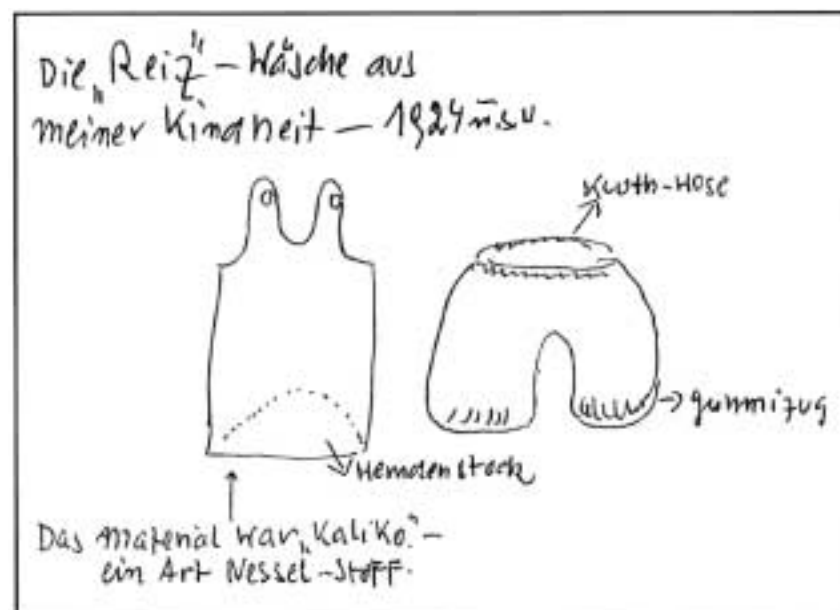 Die „Reiz"-Wäsche aus
meiner Kindheit — 1924 u.s.w.
-Hose
→ gummizug
Hemdenstock
Das Material war „Kaliko." –
ein Art Nessel-Stoff.